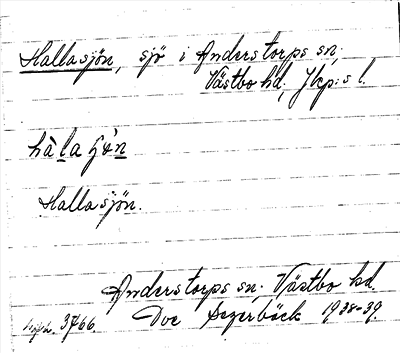 Hallasjön, sjö i Anderstorps sn,
Västbo hd, Jkp:s l.
hàla ɧö̀n
Hallasjön.
Anderstorps sn, Västbo hd.
3766. Doc Segerbäck 1938-39